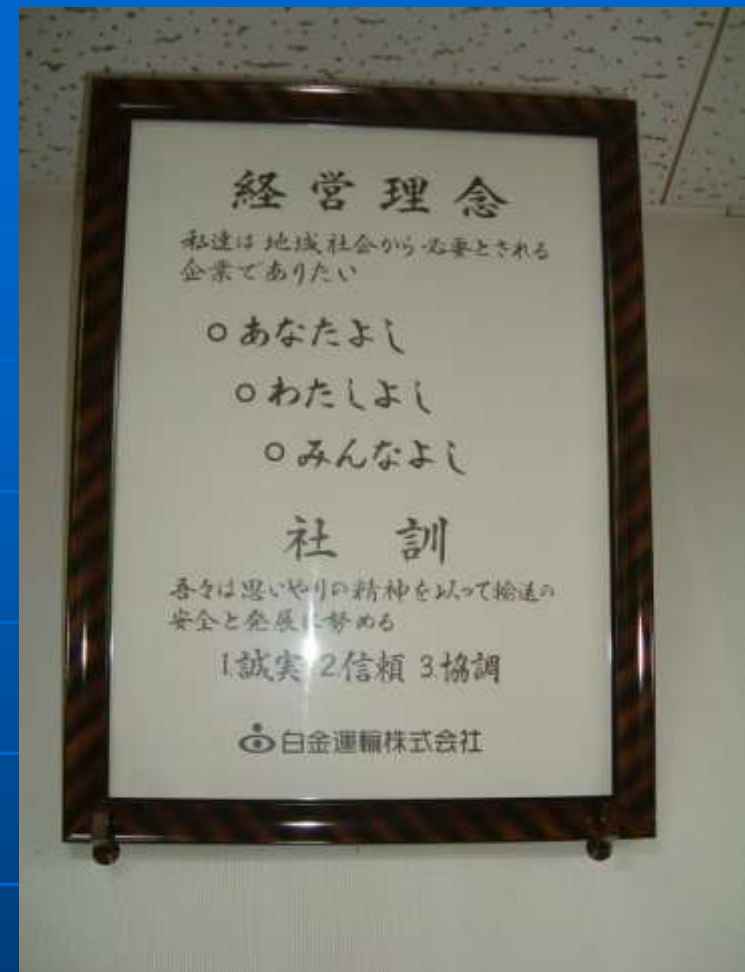 経営理念
私達は地域社会から必要とされる
企業でありたい
○あなたよし
○わたしよし
○みんなよし
社訓
吾々は思いやりの精神を以って輸送の
安全と発展に努める
1.誠実 2.信頼 3.協調
白金運輸株式会社